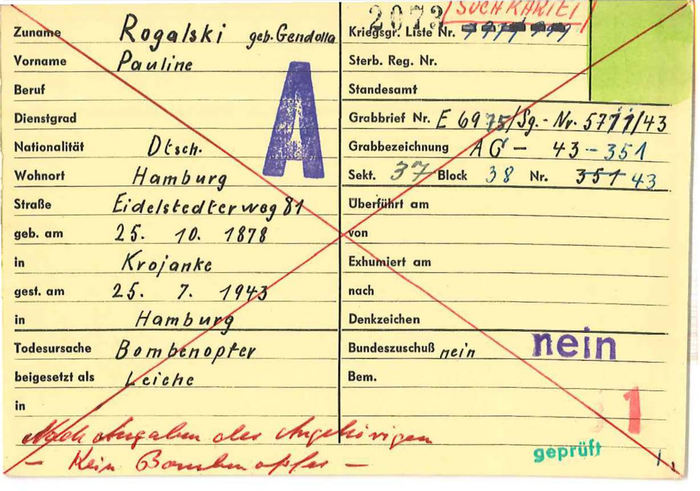 2073 SUCHKARTE!
Zuname Rogalski geb. Gendolla
Kriegsgr. Liste Nr.
Vorname Pauline
Sterb. Reg. Nr.
Beruf
Standesamt
A
Dienstgrad
Grabbrief Nr. E 6975/Sg.-Nr. 5711/43
Nationalität Dtsch.
Grabbezeichnung AG - 43-351
Wohnort Hamburg
Sekt. 37 Block 38 Nr. 351 43
Straße Eidelstedterweg 81
Überführt am
geb. am 25. 10. 1878
von
in Krojanke
Exhumiert am
gest. am 25. 7. 1943
nach
in Hamburg
Denkzeichen
Todesursache Bombenopfer
Bundeszuschuß nein nein
beigesetzt als Leiche
Bem.
in
1
Nach Angaben der Angehörigen
- Kein Bombenopfer -
geprüft